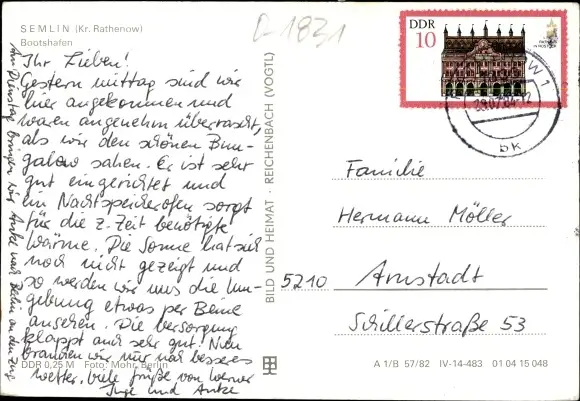 SEMLIN (Kr. Rathenow)
Bootshafen
D-1831
Ihr Lieben!
Gestern mittag sind wir
hier angekommen und
waren angenehm überrascht,
als wir den schönen Bun-
galow sahen. Er ist sehr
gut eingerichtet und
ein Nachtspeicherofen sorgt
für die z. Zeit benötigte
Wärme. Die Sonne hat sich
noch nicht gezeigt und
so werden wir uns die Um-
gebung etwas per Beine
ansehen. Die Versorgung
klappt auch sehr gut. Nun
brauchen wir nur noch besseres
Wetter. Viele Grüße von Werner
Inge und Anke
Am Dienstag bringen wir Anke nach Berlin an den Zug
DDR 0,25 M Foto: Mohr, Berlin
BILD UND HEIMAT · REICHENBACH (VOGTL)
DDR
10
bk
Familie
Hermann Möller
5210 Arnstadt
Schillerstraße 53
A 1/B 57/82 IV-14-483 01 04 15 048